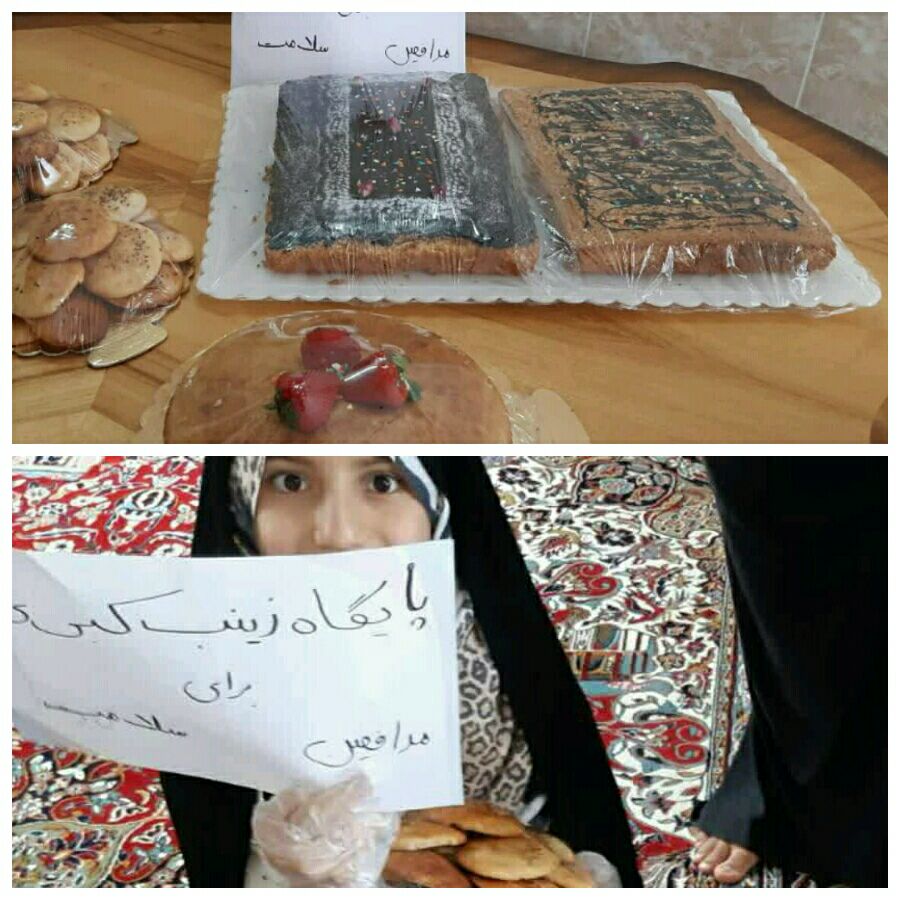 مدافعین
سلامت
پایگاه زینب کبری
برای
مدافعین
سلامت